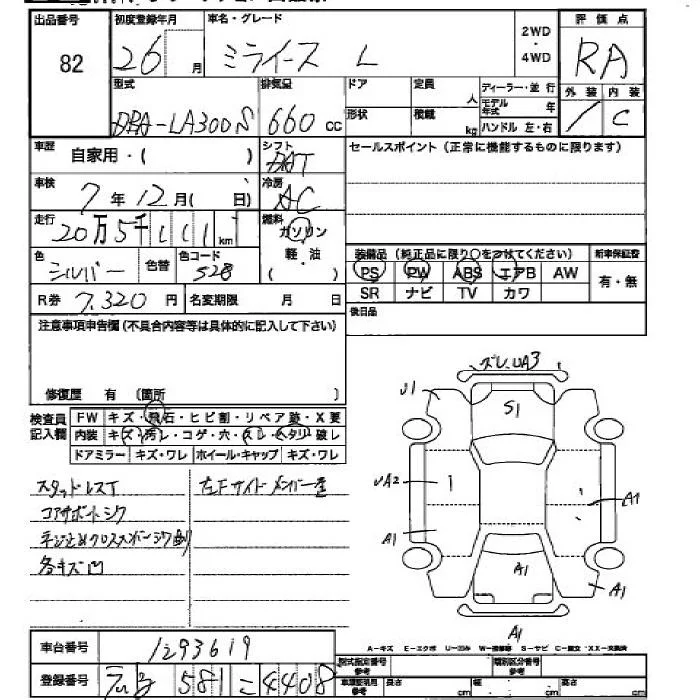 出品番号 82
初度登録年月 26 月
車名・グレード ミライース L
2WD・4WD
評価点 RA
外装 内装 C
型式 DBA-LA300S
排気量 660 cc
ドア 形状
定員 人
積載 kg
ディーラー・並行
モデル年式 年
ハンドル 左・右
車歴 自家用・( )
シフト
セールスポイント(正常に機能するものに限ります)
車検 7年12月( 日)
冷房 AC
走行 20万5千 km
燃料 ガソリン 軽・油 ( )
色 シルバー 色替 色コード S28
装備品(純正品に限り○をつけてください) 新車保証書
PS PW ABS エアB AW 有・無
SR ナビ TV カワ
R券 7,320 円 名変期限 月 日
後日品
注意事項申告欄(不具合内容等は具体的に記入して下さい)
修復歴 有 〔箇所 〕
検査員記入欄
FW キズ・飛石・ヒビ割・リペア跡・X要
内装 キズ・汚レ・コゲ・穴・スレ・ヘタリ・破レ
ドアミラー キズ・ワレ ホイール・キャップ キズ・ワレ
スタッドレスT
コアサポートシワ
各キズ凹
左Fサイドメンバー
ズレ UA3
U1
S1
UA2
A1
A1
A1
A1
A1
A-キズ E-エクボ U-凹み W-補修跡 S-サビ C-腐食 XX-交換済
車台番号 1293619
登録番号 581 こ 4408
型式指定番号 参考
類別区分番号 参考
長さ cm 幅 cm 高さ cm